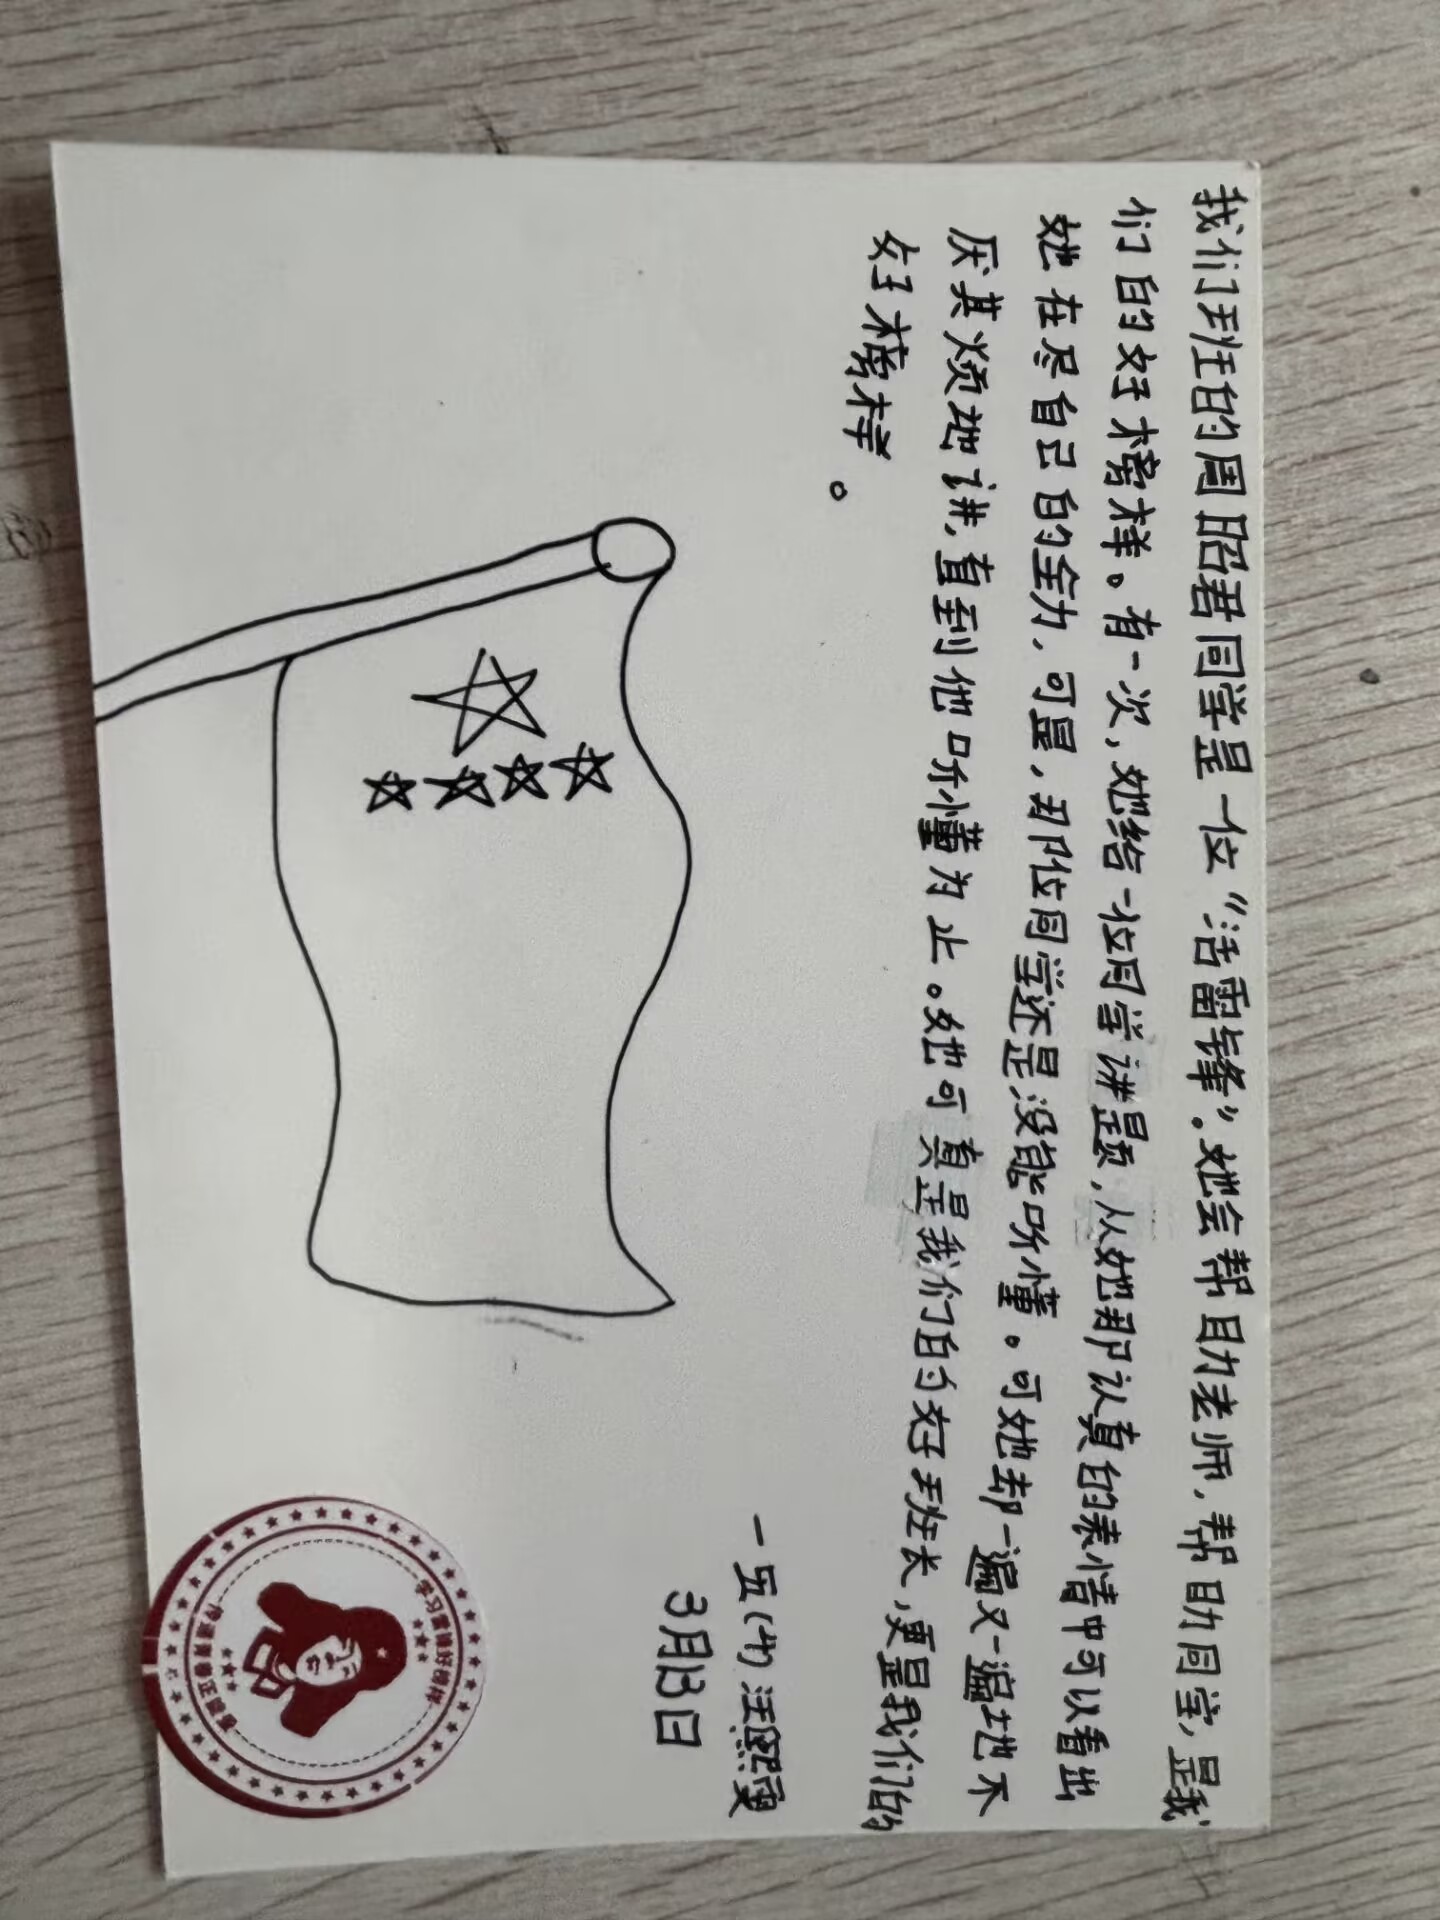 我们班的周昭君同学是一位“活雷锋”。她会帮助老师，帮助同学，是我
们的好榜样。有一次，她给一位同学讲题，从她那认真的表情中可以看出
她在尽自己的全力，可是，那位同学还是没能听懂。可她却一遍又一遍地不
厌其烦地讲，直到他听懂为止。她可真是我们的好班长，更是我们的
好榜样。
一五(4) 汪熙雯
3月13日
学习雷锋好榜样